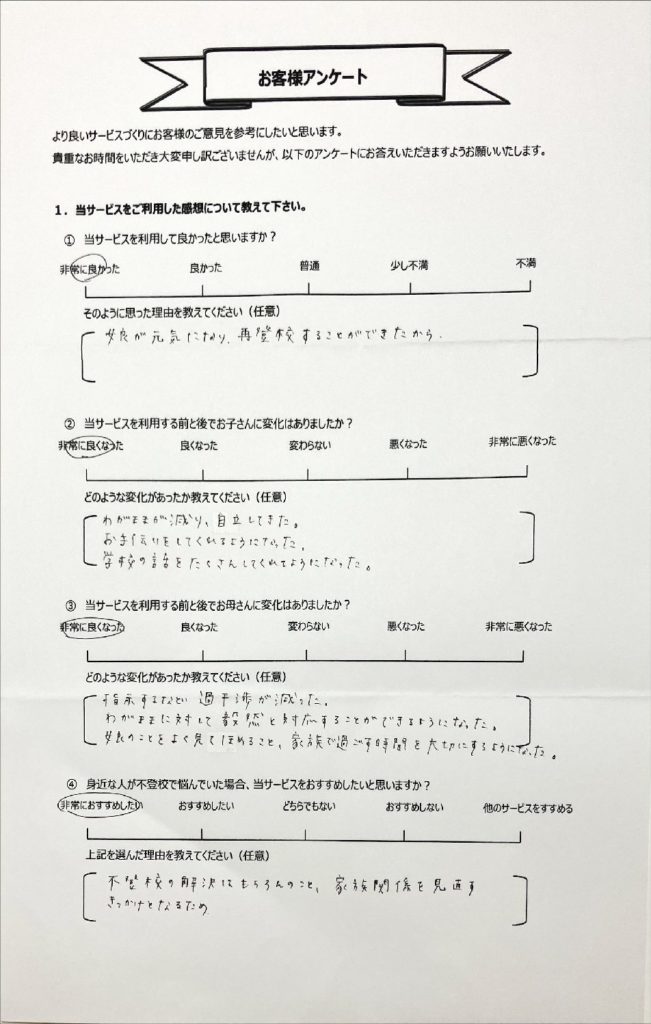 お客様アンケート
より良いサービスづくりにお客様のご意見を参考にしたいと思います。
貴重なお時間をいただき大変申し訳ございませんが、以下のアンケートにお答えいただきますようお願いいたします。
1．当サービスをご利用した感想について教えて下さい。
① 当サービスを利用して良かったと思いますか？
非常に良かった 良かった 普通 少し不満 不満
そのように思った理由を教えてください（任意）
娘が元気になり、再登校することができたから．
② 当サービスを利用する前と後でお子さんに変化はありましたか？
非常に良くなった 良くなった 変わらない 悪くなった 非常に悪くなった
どのような変化があったか教えてください（任意）
わがままが減り、自立してきた。
お手伝いをしてくれるようになった。
学校の話をたくさんしてくれるようになった。
③ 当サービスを利用する前と後でお母さんに変化はありましたか？
非常に良くなった 良くなった 変わらない 悪くなった 非常に悪くなった
どのような変化があったか教えてください（任意）
指示するなど 過干渉が減った。
わがままに対して毅然と対応することができるようになった。
娘のことをよく見てほめること、家族で過ごす時間を大切にするようになった。
④ 身近な人が不登校で悩んでいた場合、当サービスをおすすめしたいと思いますか？
非常におすすめしたい おすすめしたい どちらでもない おすすめしない 他のサービスをすすめる
上記を選んだ理由を教えてください（任意）
不登校の解決はもちろんのこと、家族関係を見直す
きっかけとなるため